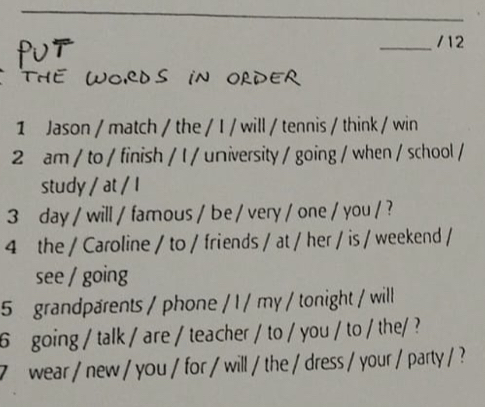 /12
PUT
THE WORDS IN ORDER
1 Jason / match / the / I / will / tennis / think / win
2 am / to / finish / I / university / going / when / school /
study / at / I
3 day / will / famous / be / very / one / you / ?
4 the / Caroline / to / friends / at / her / is / weekend /
see / going
5 grandparents / phone / I / my / tonight / will
6 going / talk / are / teacher / to / you / to / the/ ?
7 wear / new / you / for / will / the / dress / your / party / ?